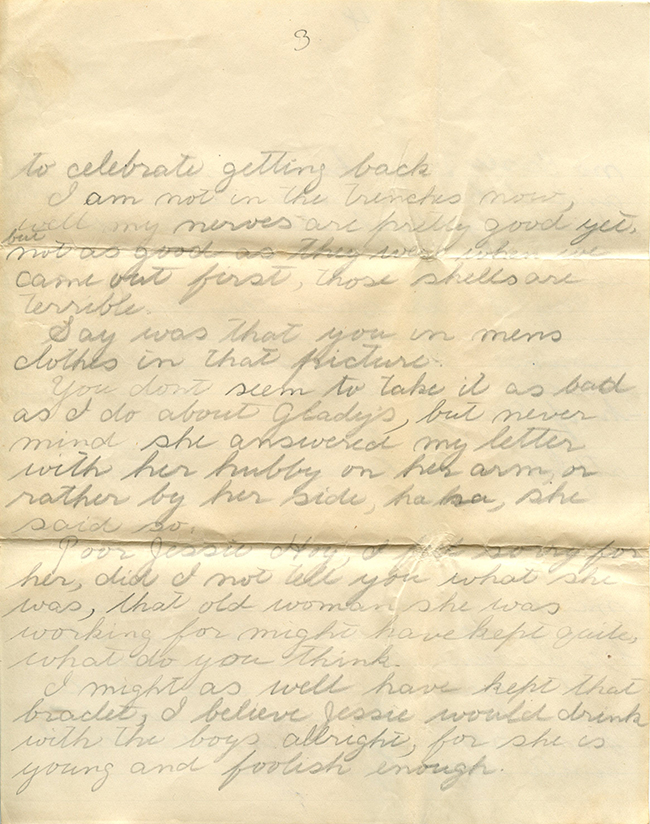 3
to celebrate getting back
I am not in the trenches now,
well my nerves are pretty good yet,
but
not as good as they were when we
came out first, those shells are
terrible.
Say was that you in mens
clothes in that picture.
You dont seem to take it as bad
as I do about Gladys, but never
mind she answered my letter
with her hubby on her arm, or
rather by her side, ha ha, she
said so.
Poor Jessie Hoy, I feel sorry for
her, did I not tell you what she
was, that old woman she was
working for might have kept quite,
what do you think.
I might as well have kept that
braclet, I believe Jessie would drink
with the boys allright, for she is
young and foolish enough.